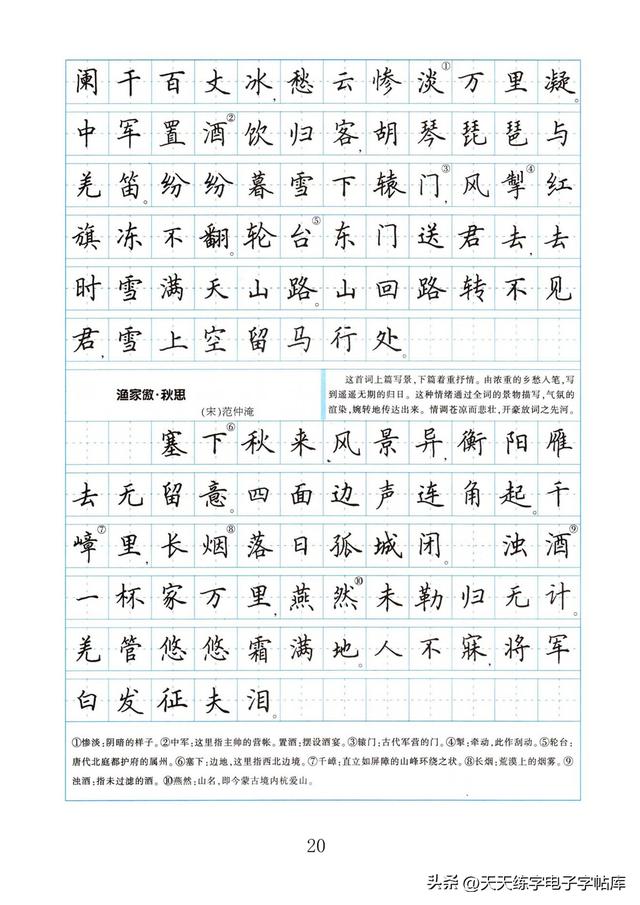 阑干百丈冰,愁云惨淡①万里凝。
中军置酒②饮归客,胡琴琵琶与
羌笛。纷纷暮雪下辕门③,风掣④红
旗冻不翻。轮台⑤东门送君去,去
时雪满天山路。山回路转不见
君,雪上空留马行处。
渔家傲·秋思
(宋)范仲淹
这首词上篇写景,下篇着重抒情。由浓重的乡愁入笔,写
到遥遥无期的归日。这种情绪通过全词的景物描写,气氛的
渲染,婉转地传达出来。情调苍凉而悲壮,开豪放词之先河。
塞下⑥秋来风景异,衡阳雁
去无留意。四面边声连角起。千
嶂⑦里,长烟⑧落日孤城闭。 浊酒⑨
一杯家万里,燕然⑩未勒归无计。
羌管悠悠霜满地。人不寐,将军
白发征夫泪。
①惨淡:阴暗的样子。②中军:这里指主帅的营帐。置酒:摆设酒宴。③辕门:古代军营的门。④掣:牵动,此作刮动。⑤轮台:
唐代北庭都护府的属州。⑥塞下:边地,这里指西北边境。⑦千嶂:直立如屏障的山峰环绕之状。⑧长烟:荒漠上的烟雾。⑨
浊酒:指未过滤的酒。⑩燕然:山名,即今蒙古境内杭爱山。
20
头条 @天天练字电子字帖库